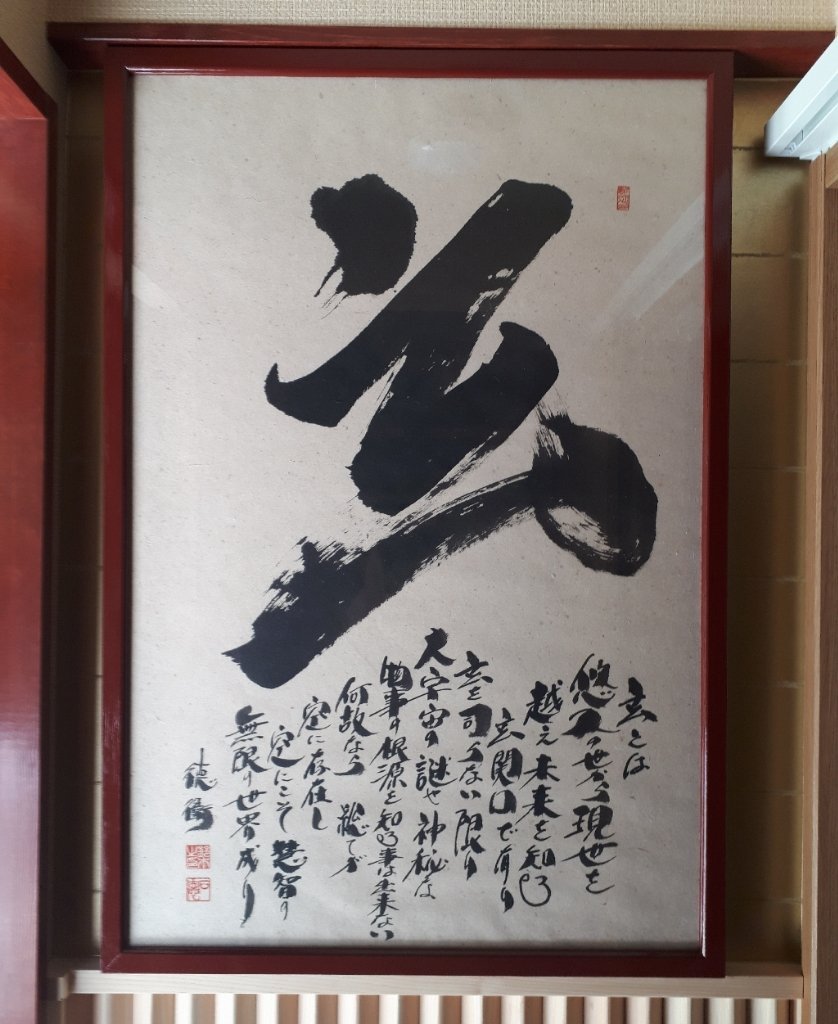 玄
玄とは
悠久の世から現世を
越え未来を知る
玄関口で有り
玄を司らない限り
大宇宙の謎や神秘は
物事の根源を知る事は出来ない
何故なら総てが
空に存在し
空にこそ慧智の
無限の世界成り